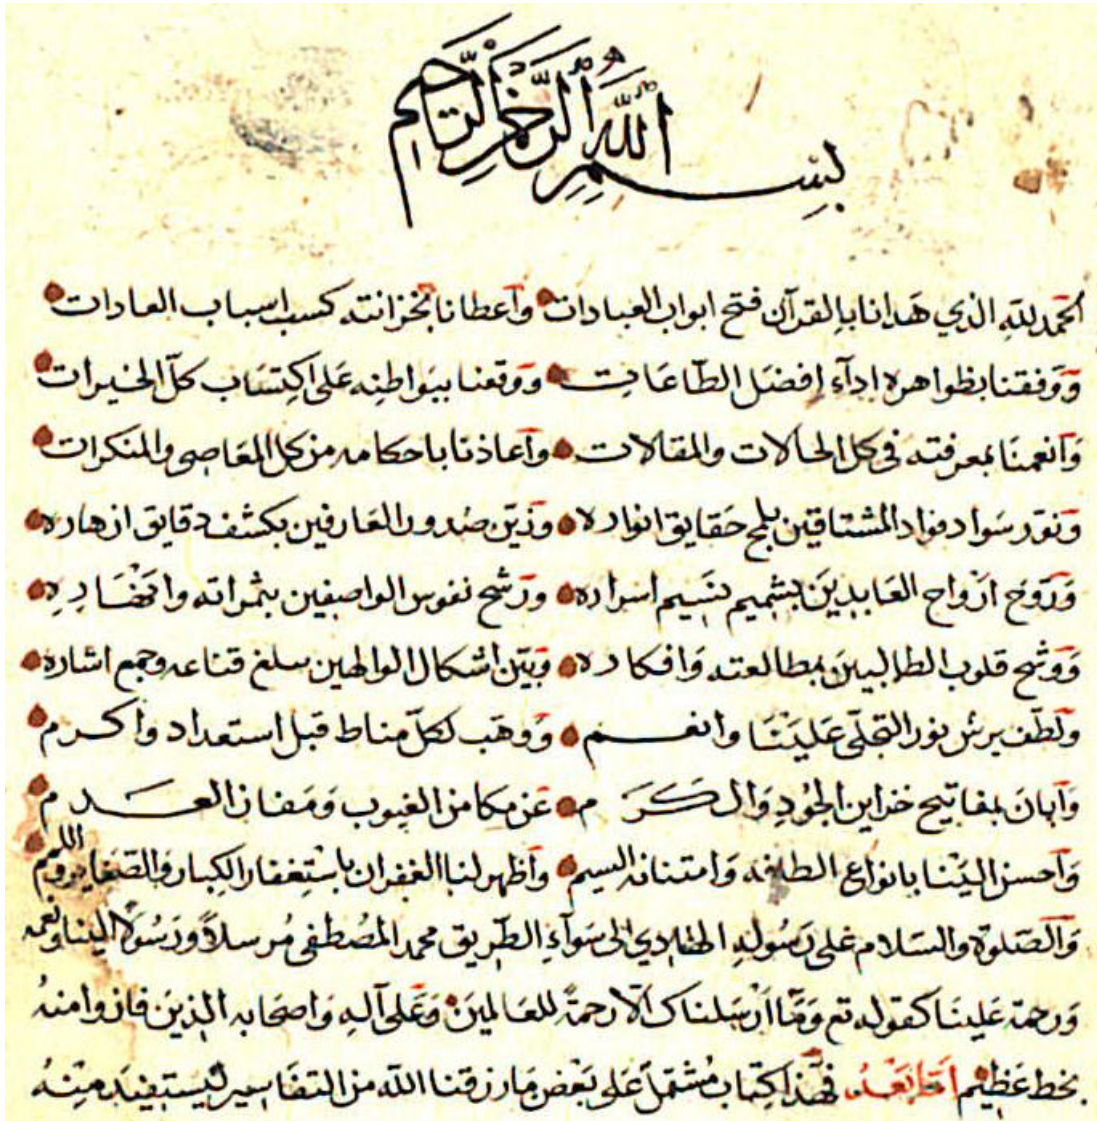 بسم الله الرحمن الرحيم
الحمد لله الذي هَدانا بالقرآن فتح ابواب العبادات وآعطانا بخزانته كسب اسباب العادات
وَوَفقنا بظواهره ادآء افضل الطّاعَات ووقعنا ببَواطِنِه عَلى اكِتسَاب كلّ الخيرات
وَآنعمنَا بمعرفته في كل الحالات والمقالات وآعاذنا باحكامه من كل المعَاصى والمنكرات
وَنوّر سَواد فواد المشتاقين بلمح حَقايق انواره وزيّن صُدور العَارفين بكشف دقايق ازهاره
وَرَوّح ارْواح العَابدِينَ بشميم نسَيم اسراره ورَشح نفوس الواصفين بثمراته وانهَارِهِ
وَوَشح قلوب الطالبينَ بمطالعته وَافكاره وبَيّن اشكال الوالهين قناعه وجمع اشاره
ولطّف برش نور التجلّى عَليْنَا وانعم وَوهَب لكلّ مناط قبل استعداد واكرم
وَآبانَ بمفاتيح خزاين الجُودِ وَالكَرَم عَن مكامن الغيوب وَمَفازَ العدم
وَآحسن اليْنا بانواع الطافه وَامتنانه وآظهر لنا الغفران باسْتِغفار الكِبار وَالصّغاير
وَالصّلوة والسّلام عَلى رَسُولهِ الهادي الى سَوآءِ الطّريق محمد المصُطفى مُرسلاً وَرَسُولاً الينا ونعمه
وَرحمة عَلينَا كقوله تع وَمَآ ارْسَلناك الّا رحمةً للعَالمينَ وَعَلى آلهِ وَاصحَابه الذينَ فازوا منهُ
بخط عَظِيم امّا بَعْدُ فهَذا كِتاب مُشتمل عَلى بَعْض مَا رزقنا الله من التفَاسير ليستفيدَ مِنهُ